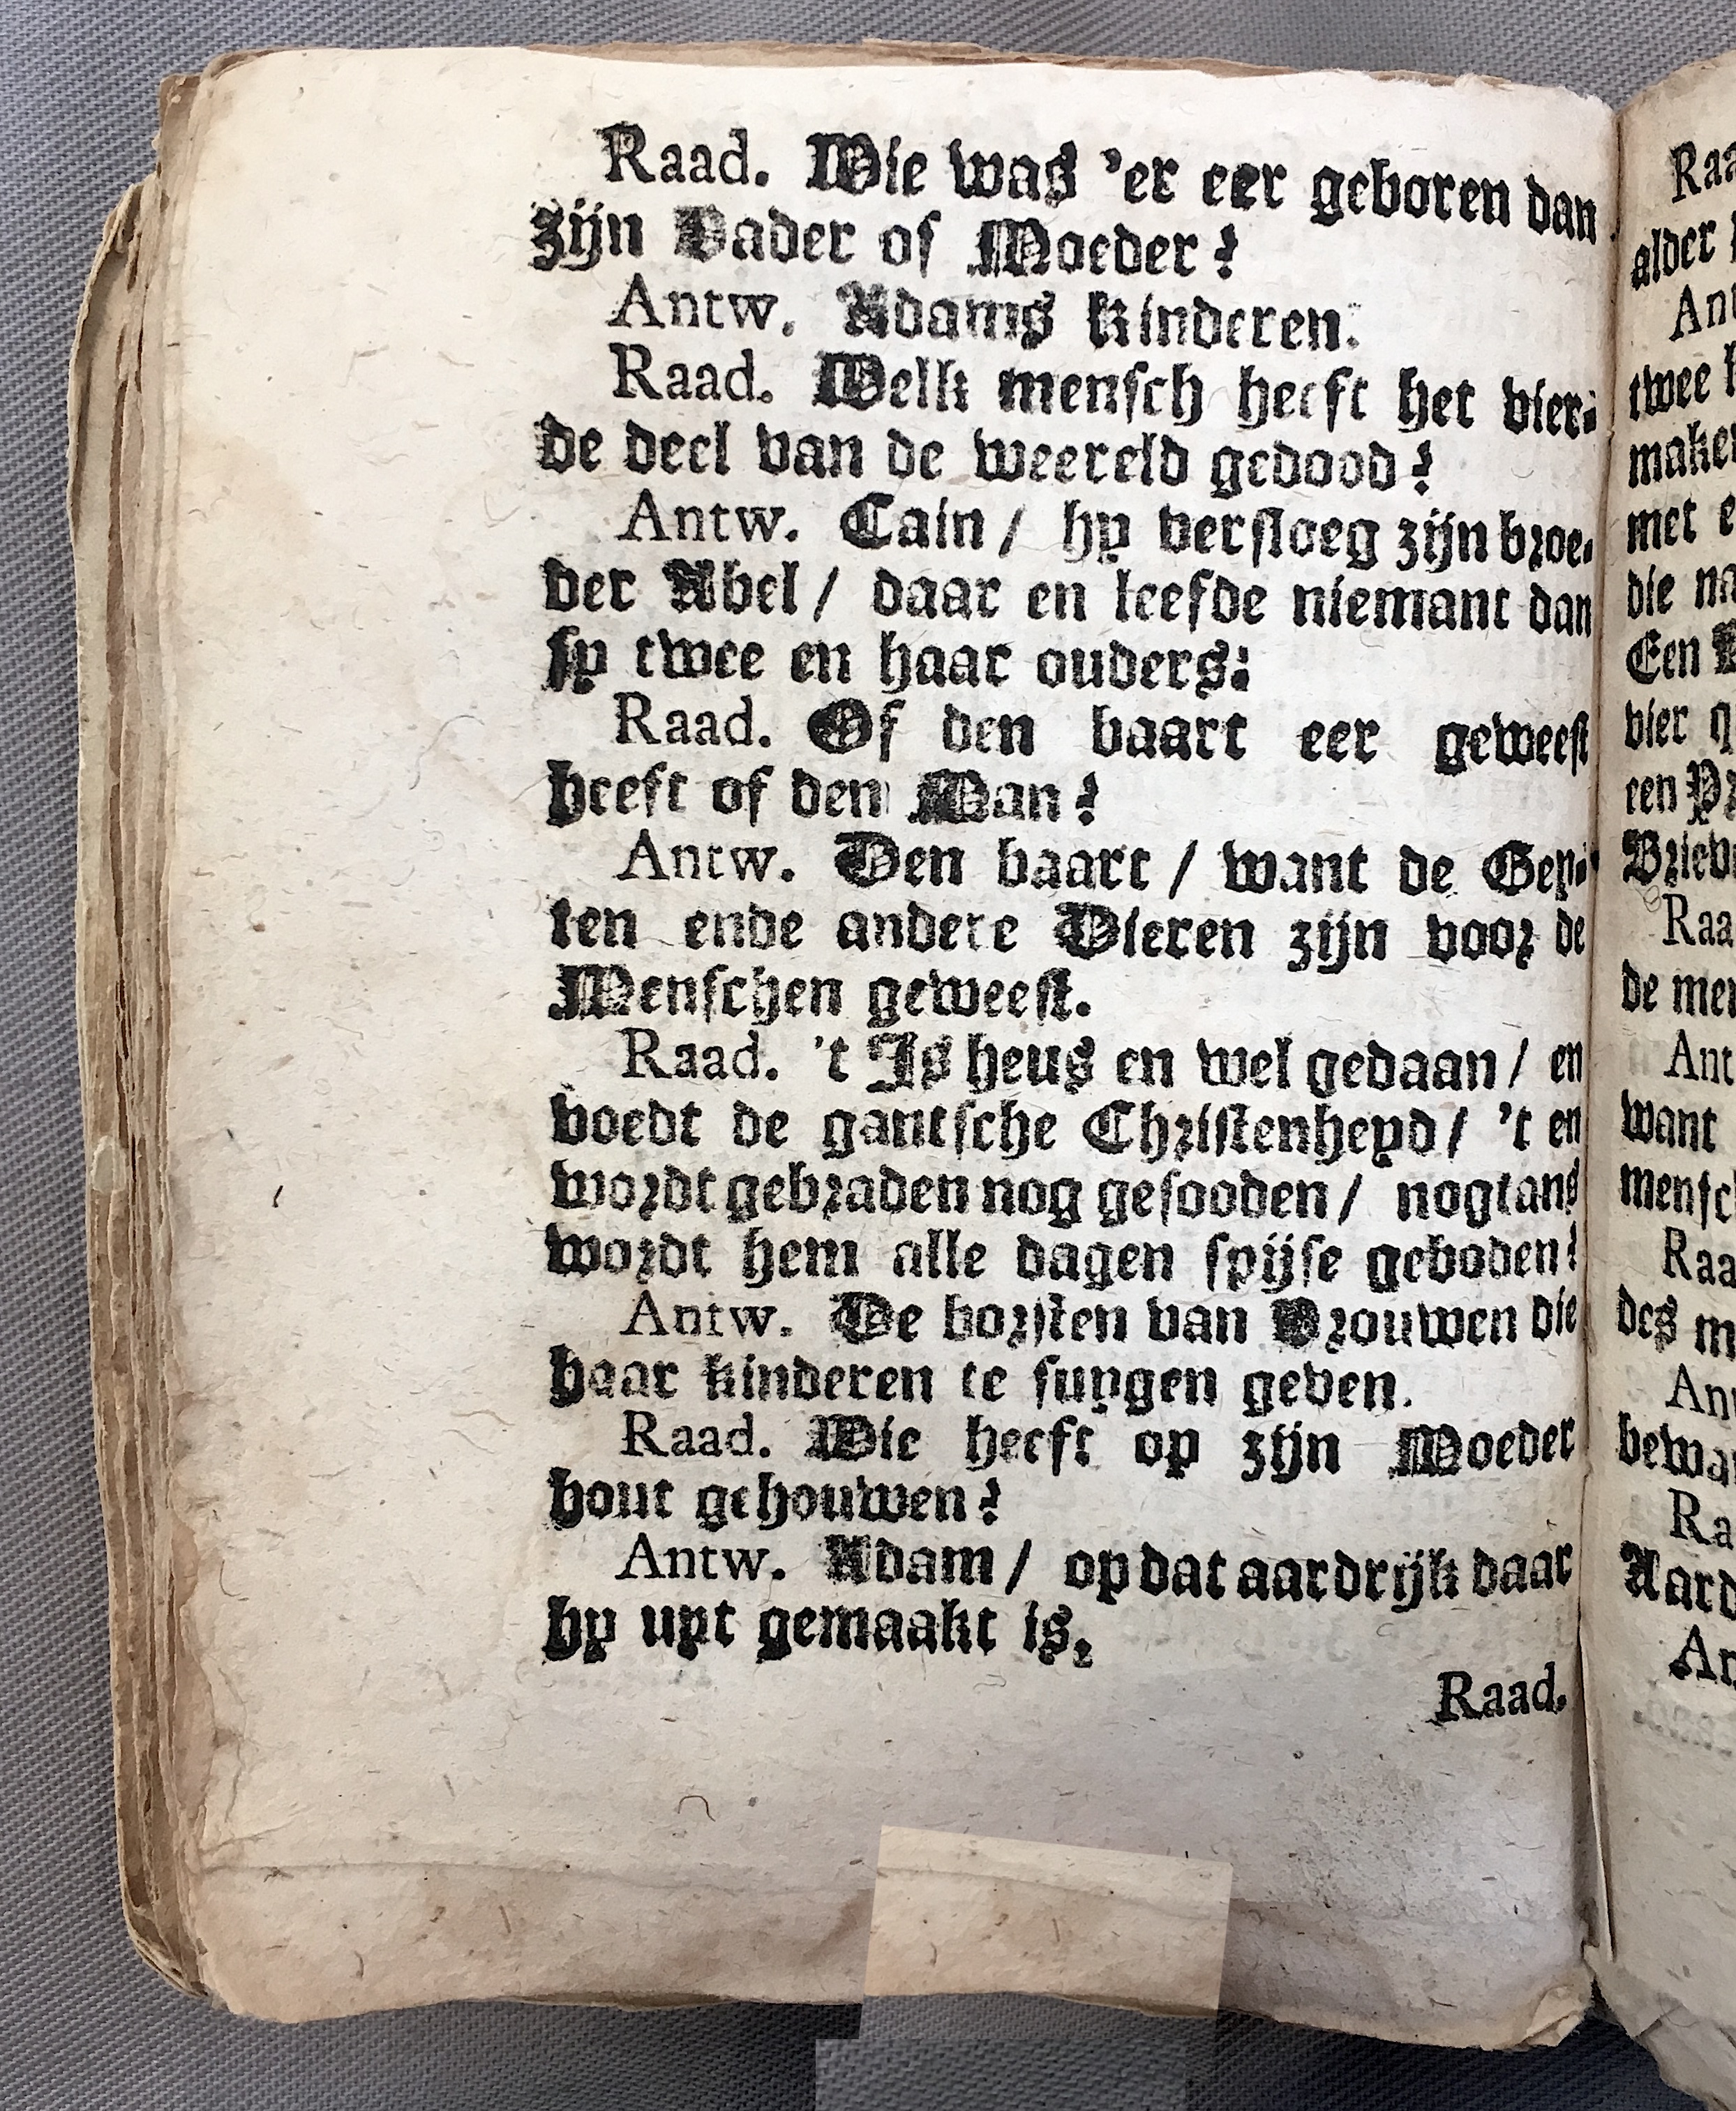 Raad. Wie was 'er eer geboren dan
zijn Vader of Moeder?
Antw. Adams kinderen.
Raad. Welk mensch heeft het vier-
de deel van de weereld gedood?
Antw. Cain / hy versloeg zijn broe-
der Abel / daar en leefde niemant dan
sy twee en haar ouders.
Raad. Of den baart eer geweest
heeft of den Man?
Antw. Den baart / want de Gey-
ten ende andere Dieren zijn voor de
Menschen geweest.
Raad. 't Is heus en wel gedaan / en
voedt de gantsche Christenheyd / 't en
wordt gebraden nog gesooden / nogtans
wordt hem alle dagen spijse geboden?
Antw. De borsten van Vrouwen die
haar kinderen te suygen geven.
Raad. Wie heeft op zijn Moeder
hout gehouwen?
Antw. Adam / op dat aardrijk daar
hy uyt gemaakt is.
Raad.
Raa
alder
Ant
twee h
maken
met e
die na
Een
vier g
een Pr
Brieve
Raa
de men
Ant
want
mensc
Raa
des m
An
bewa
Ra
Aard
An